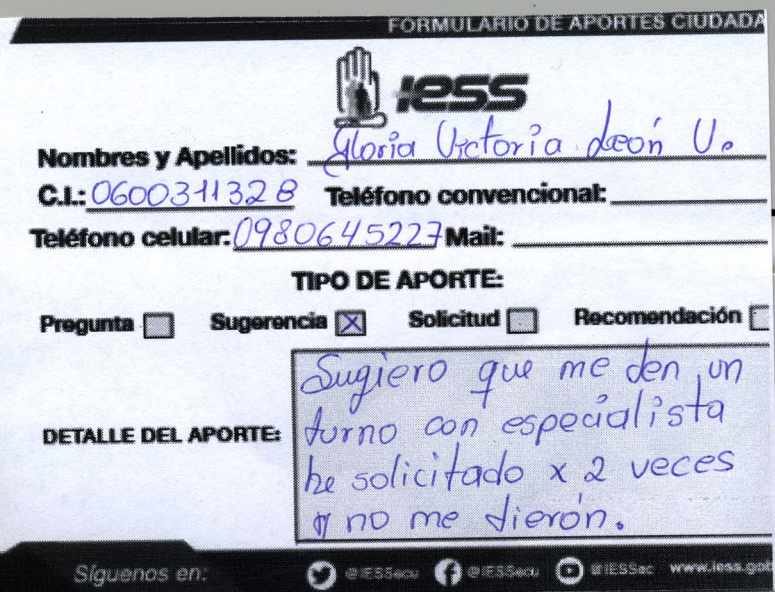 FORMULARIO DE APORTES CIUDADA
IESS
Nombres y Apellidos: Gloria Victoria León V.
C.I.: 0600311328 Teléfono convencional:
Teléfono celular: 0980645227 Mail:
TIPO DE APORTE:
Pregunta Sugerencia X Solicitud Recomendación
DETALLE DEL APORTE:
Sugiero que me den un
turno con especialista
he solicitado x 2 veces
y no me dierón.
Síguenos en: @IESSecu @IESSecu @IESSec www.iess.gob